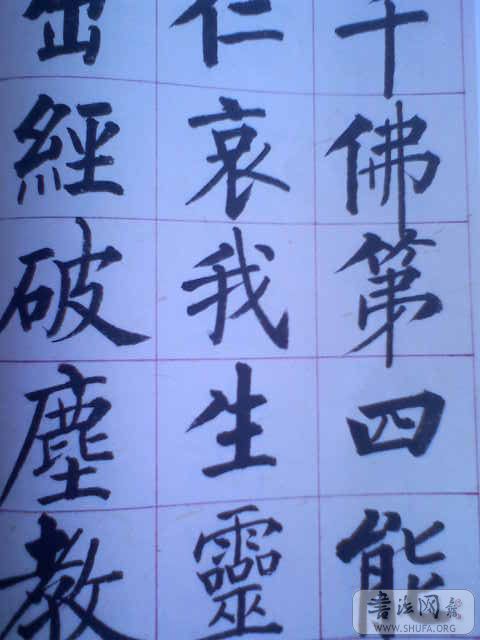 千佛第四能
仁哀我生靈
出經破塵教
書法网
WWW.SHUFA.ORG